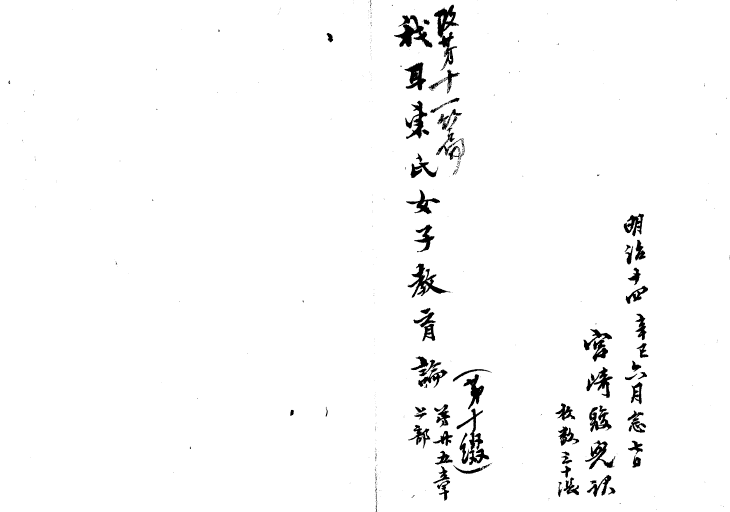 明治十四辛巳六月念七日
宮崎駿児訳
枚数三十張
改第十一篇
我耳東氏女子教育論
(第十綴)
第廿五章
上部